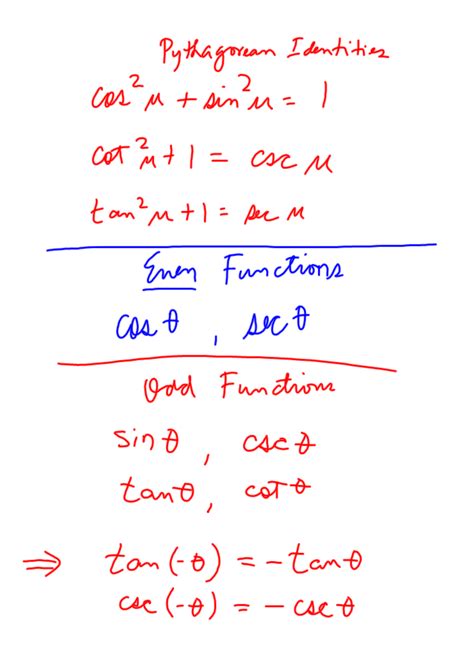 Pythagorean Identities
cos²u + sin²u = 1
cot²u + 1 = csc u
tan²u + 1 = sec u
Even Functions
cos θ , sec θ
Odd Functions
sin θ , csc θ
tan θ , cot θ
⇒ tan(-θ) = -tan θ
csc(-θ) = -csc θ